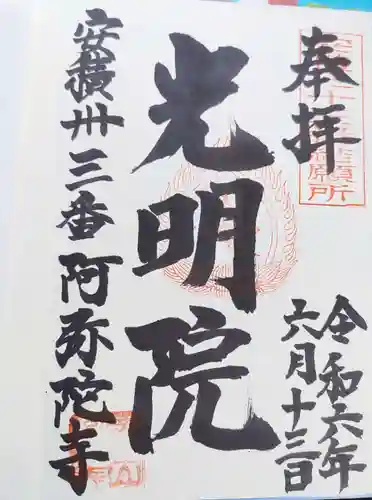 奉拝
光明院
安積卅三番 阿弥陀寺
令和六年
六月十三日